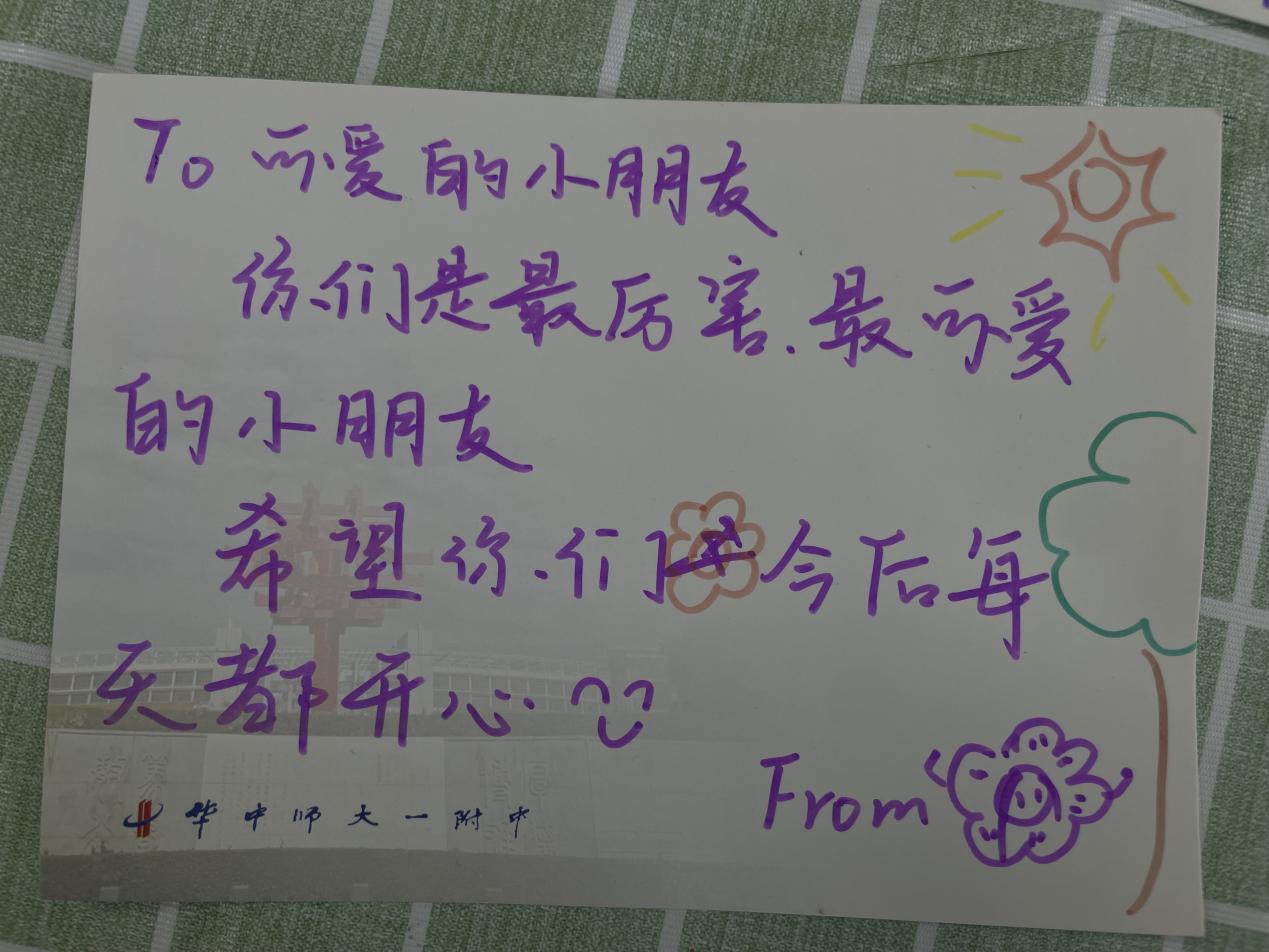 To 可爱的小朋友
你们是最厉害、最可爱
的小朋友
希望你们今后每
天都开心
From
华中师大一附中